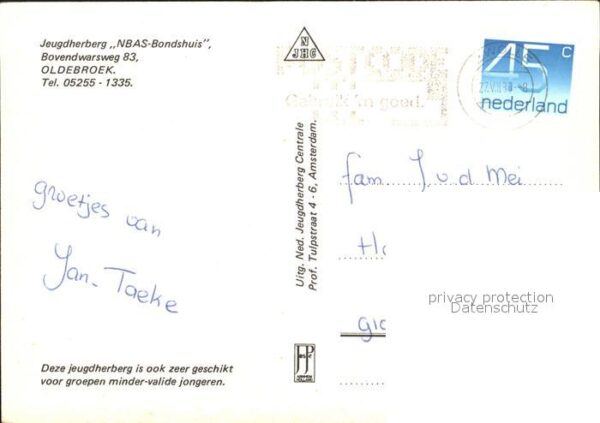 Jeugdherberg „NBAS-Bondshuis”,
Bovendwarsweg 83,
OLDEBROEK.
Tel. 05255 - 1335.
groetjes van
Jan-Taeke
Deze jeugdherberg is ook zeer geschikt
voor groepen minder-valide jongeren.
N
JHC
Uitg. Ned. Jeugdherberg Centrale
Prof. Tulpstraat 4 - 6, Amsterdam.
POSTCODE
Gebruik 'm goed.
45 c
nederland
fam. J. v d Mei
privacy protection
Datenschutz